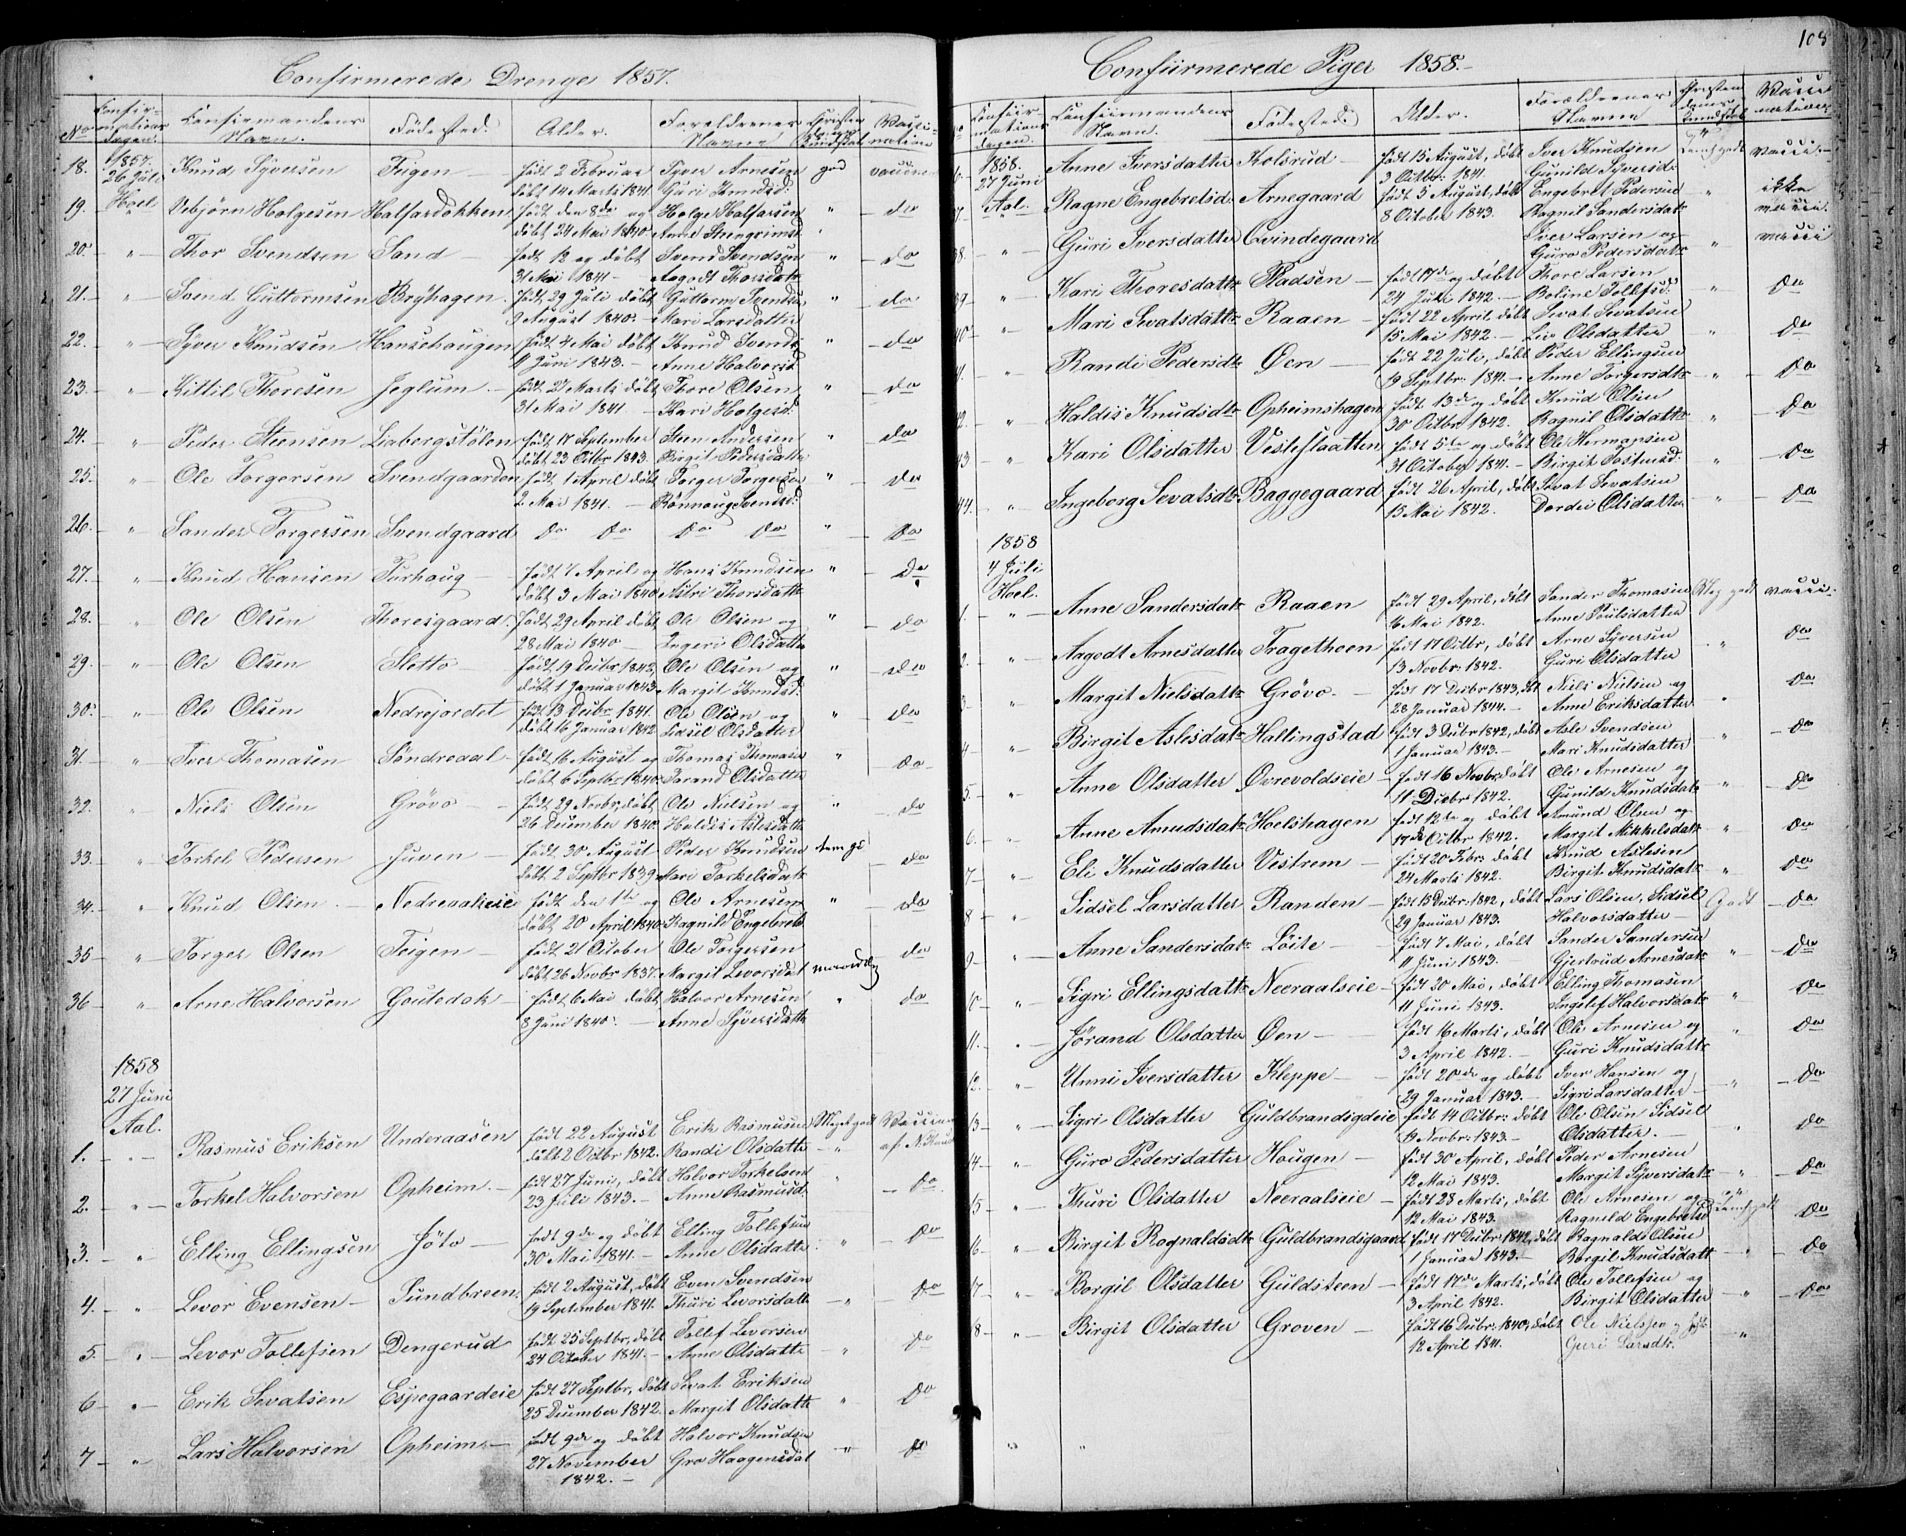 Confirmerede Drenge 1857.
No Confirmations dagen. Confirmandens Navn. Fødested. Alder. Forældrenes Navne Christendoms Kundskab Vaccination
18. 1857. 26 Juli Hoel Knud Syversen Teigen — født 2 Februar Syver Arnesen god vaccin
døbt 14 Marts 1841 Guri Knudsd:
19. " Vebjørn Helgesen født den 8de og Helge Halfarsen " do
døbt 24 Mai 1840 Anne Steengrimsd
20. " Thor Svendsen Sand — født 12 og døbt Svend Svendsen " do
31 Mai 1841 — Aagodt Thorsdatr
21. " Svend Guttormsen Bryhagen. født 29 Juli døbt Guttorm Svendsen " do
9 August 1840. Mari Larsdatter
22. " Syver Knudsen Hansehaugen født 4 Mai døbt Knud Svends " do
11 Juni 1843. — Anne Halvorsd
23. " Kittil Thoresen Jeglum. — født 27 Marts døbt Thore Olsen " do
31 Mai 1841 — Kari Helgesd:
24. " Peder Steensen født 17 September Steen Andersen " do
døbt 23 Octbr 1843. Birgit Pedersdattr
25. " Ole Torgersen Svendgaarden født 1 April døbt Torger Torgersen " do
2 Mai 1841. — Rønnaug Svendsd:
26. " Sander Torgersen Svendgaard do do do do " do
27. " Knud Hansen Turhaug — født 7 April og Hans Knudsen " do
døbt 3 Mai 1840 Astri Thorsdattr
28. " Ole Olsen Thoresgaard. født 29 April døbt Ole Olsen og " do
28 Mai 1840 — Ingeri Olsdatter
29. " Ole Olsen Sletto — født 19 Decbr 1842, Ole Olsen og " do
døbt 1 Januar 1843. Margit Knudsd.
30. " Ole Olsen Nedrejordet født 13 Decbr 1841. Ole Olsen og " do
døbt 16 Januar 1842 Sidsel Olsdatter
31. " Iver Thomasen Søndreaal — født 16 August og Thomas Thomasen " do
døbt 6 Septbr 1840. Jorand Olsdatter
32. " Niels Olsen Grøvo — født 29 Novbr, døbt Ole Nielsen og " do
26 December 1840. Haldis Aslesdattr
33. " Torkel Pedersen Juven — født 30 August Peder Knudsen do
døbt 2 Septbr 1839 Mari Torkelsdatr
34. " Knud Olsen — Nedreaaleie født den 1te og Ole Arnesen " do
døbt 20 April 1840. Ragnild Engebretsd
35. " Torger Olsen Teigen — født 21 October Ole Torgersen do
døbt 26 Novbr 1837. Margit Levorsdat
36. " Arne Halvorsen — født 6 Mai døbt Halvor Arnesen " do
8 Juni 1840. — Anne Syversdatter
1858
27 Juni
Aal.
1. " Rasmus Eriksen Underaasen født 22 August Erik Rasmusen Meget godt Vaccine
døbt 2 Octbr 1842. Randi Olsdatter " af N. Knud
2. " Torkel Halvorsen Opheim. — født 27 Juni, døbt Halvor Torkelsen " do
23 Juli 1843. — Anne Rasmusd.
3. " Elling Ellingsen Jøto — født 9de og døbt Elling Tollefsen " do
30 Mai 1841. — Anne Olsdatter
4. " Levor Evensen — Sundbreen. født 2 August, døbt Even Svendsen " do
19 September 1841. Thuri Levorsdattr
5. " Levor Tollefsen Dengerud født 25 Septbr, døbt Tollef Levorsen " do
24 October 1841. — Anne Olsdatter
6. " Erik Sevatsen Espegaardeie født 27 Septbr, døbt Sevat Eriksen " do
25 December 1842. Margit Olsdatter
7 " Lars Halvorsen Opheim — født 9de og døbt Halvor Knudsen " do
27 November Gro Haagensdat
1842. —
Confirmerede Piger 1858. —
108
Confirmations dagen. Confirmandens Navn. Fødested. Alder. Forældrenes Navne Christendoms Kundskab Vaccinationen
1858. 27 Juni Aal. Anne Iversdatter Kolsrud — født 15 August, døbt Iver Knudsen Temmelig godt vacci —
3 Octbr 1841. Gunild Syversd:
Ragne Engebretsd. Arnegaard født 5 August, døbt Engebret Pedersen " ikke
8 October 1843. Ragnil Sandersdatr vacci.
38. " Guri Iversdatter Qvindegaard Iver Larsen og " vacci
Guro Pedersdatr
39. " Kari Thoresdattr Pladsen — født 17de og døbt Thore Larsen " do
24 Juli 1842. — Boline Tollefsd:
40. " Mari Sevatsdattr Raaen — født 22 April, døbt Sevat Sevatsen " do
15 Mai 1842. — Liv Olsdatter
41. " Randi Pedersdtr Øen — født 22 Juli, døbt Peder Ellingsen " do
19 Septbr. 1841. — Anne Torgersdtr
42. " Haldis Knudsdtr Opheimshagen født 13de og døbt Knud Olsen " do
30 Octbr 1842. Ragnil Olsdatter
43. " Kari Olsdatter Vesleslaatten født 5te og døbt Ole Hermansen " do
31 October 1841. — Birgit Tostensd:
44. " Ingeborg Sevatsdtr Baggegaard født 26 April, døbt Sevat Sevatsen " do
15 Mai 1842. Dordei Olsdatter
1858
4 Juli
Hoel.
1. " Anne Sandersdatr Raaen født 29 April, døbt Sander Thomasen Meg godt vacci.
16 Mai 1842. Anne Poulsdatter
2. " Aagodt Arnesdatter Tragethoen født 17 Octbr, døbt Arne Syversen " do
13 Novbr. 1842. Guri Olsdatter
3 " Margit Nielsdattr Grøvo. — født 17 Decbr 1843, dbt Niels Nielsen og " do
28 Januar 1844. — Anne Eriksdatter
4 " Birgit Aslesdatr Hallingstad født 3 Decbr 1842, døbt Asle Svendsen " do
1 Januar 1843. — Mari Knudsdatter
5. " Anne Olsdatter Øvrevoldseie — født 16 Novbr, døbt Ole Arnesen og " do
11 Decbr 1842. Gunild Knudsdatr
6 " Anne Amundsdatr Hoelshagen født 12te og døbt Amund Olsen og " do
17de Octbr 1842. Margit Mikkelsdatr
7 " Eli Knudsdatter Vestrem — født 20 Febr, døbt Knud Aslesen " do
24 Marts 1842. Birgit Knudsdatr
8 " Sidsel Larsdatter Randen — født 15 Decbr 1842, døbt Lars Olsen, Sidsel Godt — do
29 Januar 1843. Halvorsdatter —
9. " Anne Sandersdatr Løite — født 7 Mai, døbt Sander Sandersen " do
11 Juni 1843. Gjertrud Arnesdatr
10 " Sigri Ellingsdattr Neeraalseie — født 20 Mai, døbt Elling Thomasen " do
11 Juni 1843. Ingelef Halvorsdatr
11. " Jørand Olsdatter Øen — født 16 Marts, døbt Ole Arnesen og " do
3 April 1842. — Guri Knudsdattr
12. " Unni Iversdatter Kleppe — født 20de og døbt Iver Hansen og " do
29 Januar 1843. — Sigri Larsdatter —
13 " Sigri Olsdatter Guldbrandsgdeie født 14 Octbr. døbt Ole Olsen Sidsel do
19 Novbr. 1843. — Olsdatter. —
14 " Guro Pedersdatter Haugen — født 30 April, døbt Peder Arnesen " do
12 Mai 1843. Margit Syversdatr
15 " Thuri Olsdatter Neeraalseie — født 28 Marts, døbt Ole Arnesen og Temlg godt do
12 Mai 1843. Ragnild Engebretsd
16 " Birgit Rognaldsdtr Guldbrandsgaard født 17 Decbr 1842, døbt Rognald Olsen " do
1 Januar 1843. — Borgil Knudsdatt
17 " Borgil Olsdatter Guldsteen — født 17de Marts, døbt Ole Tollefsen og " do
3 April 1842. Birgit Olsdatter
8 " Birgit Olsdatter Groven — født 16 Decbr. 1840, døbt Ole Nielssen "
12 April 1841. Guri Larsdtr.